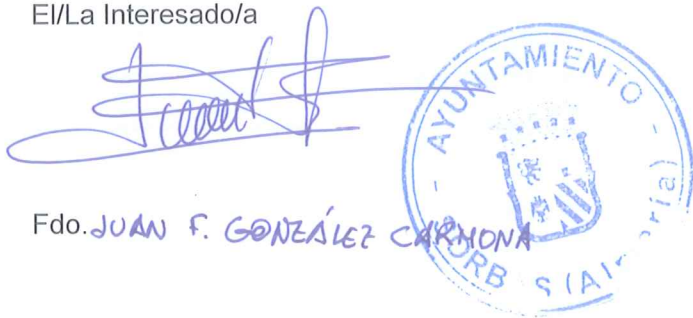 El/La Interesado/a
Fdo. JUAN F. GONZÁLEZ CARMONA
AYUNTAMIENTO -